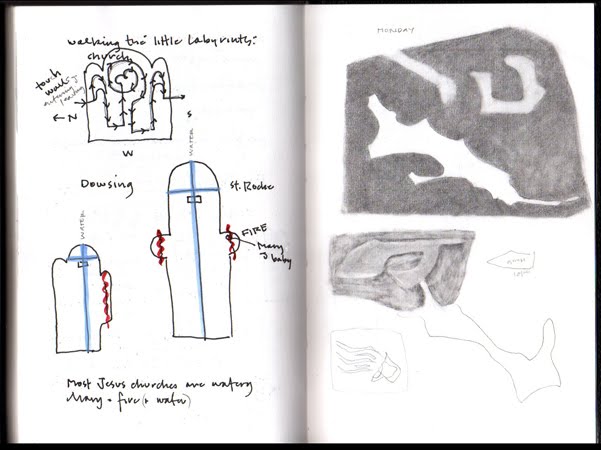 walking the little labyrinths:
church
touch
walls
← N
S
W
WATER
Dowsing
St. Roche
WATER
FIRE
Mary
& baby
Most Jesus churches are watery
Mary = fire (+ water)
MONDAY